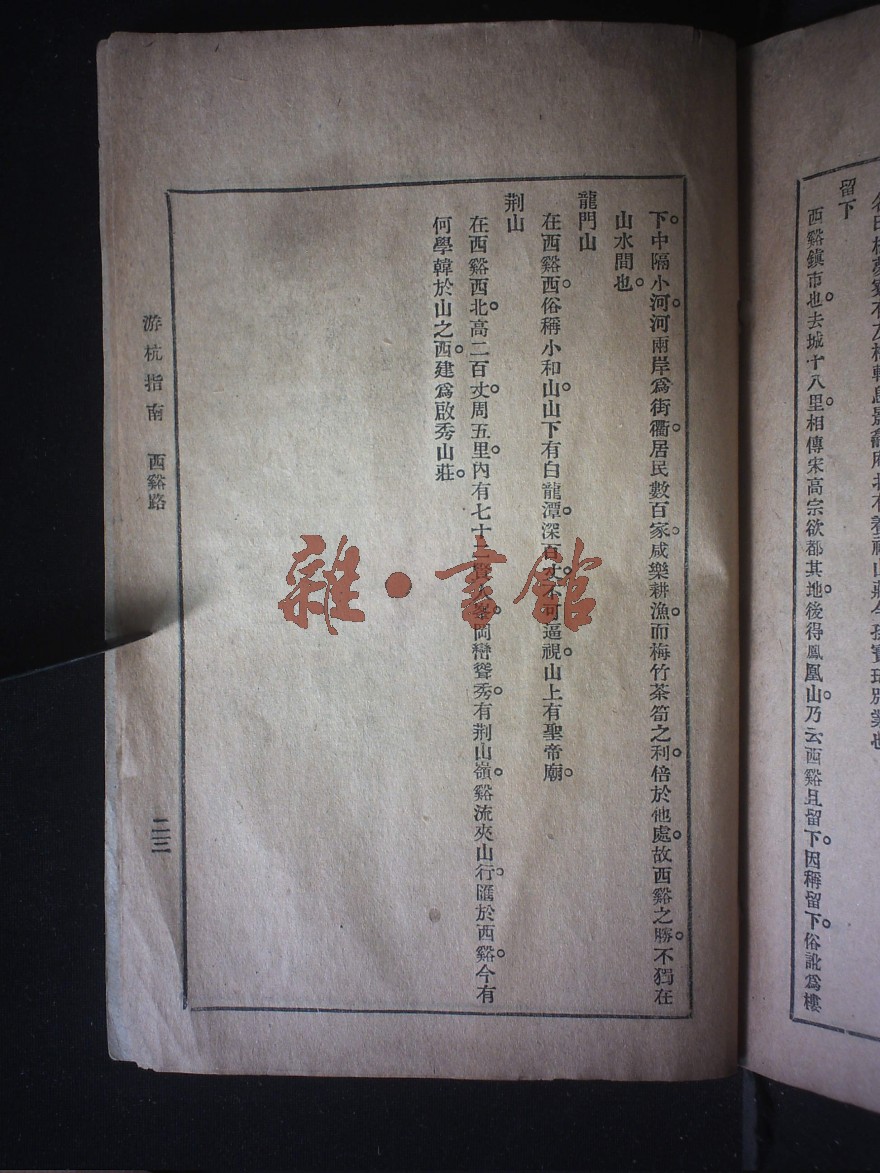 留下
西谿鎮市也。去城十八里。相傳宋高宗欲都其地。後得鳳凰山。乃云西谿且留下。因稱留下。俗訛爲樓
下。中隔小河。河兩岸爲街衢。居民數百家。咸樂耕漁。而梅竹茶筍之利。倍於他處。故西谿之勝。不獨在
山水間也。
龍門山
在西谿西。俗稱小和山。山下有白龍潭。深百丈。不可逼視。山上有聖帝廟。
荆山
在西谿西北。高二百丈。周五里。內有七十二賢人峯。岡巒聳秀。有荆山嶺。谿流夾山行。匯於西谿。今有
何學韓於山之西。建爲啟秀山莊。
游杭指南 西谿路
二三
雜·書館